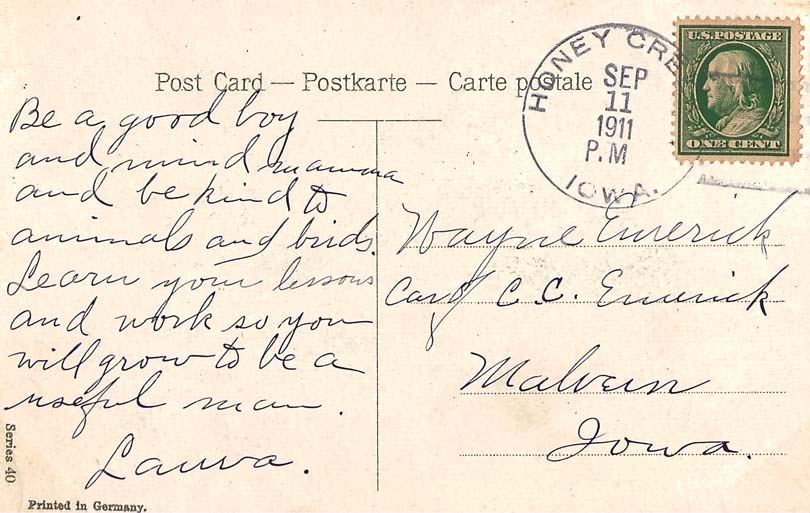 Post Card — Postkarte — Carte postale
HONEY CRE
SEP
11
1911
P.M
IOWA.
U.S. POSTAGE
ONE CENT
Be a good boy
and mind mamma
and be kind to
animals and birds.
Learn your lessons
and work so you
will grow to be a
useful man.
Laura.
Wayne Emerick
Care of C. C. Emerick
Malvern
Iowa.
Series 40
Printed in Germany.